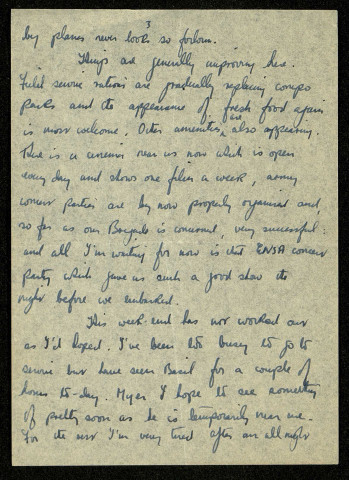 3
by planes never look so forlorn.
Things are generally improving here.
Field service rations are gradually replacing compo
packs and the appearance of fresh food again
is most welcome. Other amenities are also appearing.
There is a cinema near us now which is open
every day and shows one film a week, army
concert parties are by now properly organised and,
so far as our Brigade is concerned, very successful:
and all I'm waiting for now is that ENSA concert
party which gave us such a good show the
night before we embarked.
This week-end has not worked out
as I'd hoped. I've been too busy to go to
service but have seen Basil for a couple of
hours to-day. Myer I hope to see something
of pretty soon as he is temporarily near me.
For the rest I'm very tired after an all night